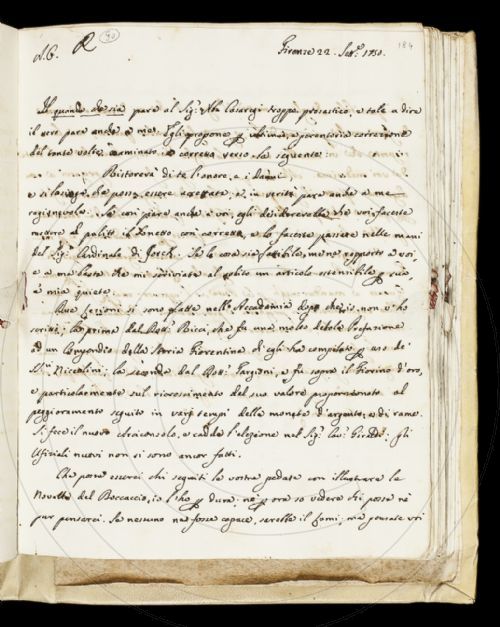 A. C. R 90 Firenze 22. Sett.e 1750. 184
Il quando che sia pare al Sig.r Ab. Casaregi troppo prosastico, e tale a dire
il vero pare anche a me. Egli propone p ultima, e perentoria correzione
del tante volte esaminato e corretto verso la seguente
Ristorerà di te l'onore, e i danni
e si lusinga, che possa essere accettata; e in verità pare anche a me
ragionevole. Se così pare anche a voi, egli desidererebbe che voi faceste
mettere al pulito il Sonetto così corretto, e lo faceste passare nelle mani
del Sig.r Cardinale di Jorch. Se la cosa sia fattibile, me ne rapporto a voi
e a me basta che mi scriviate al solito un articolo ostensibile p sua,
e mia quiete.
Due lezioni si sono fatte nell'Accademia dopo che io non v'ho
scritto; la prima dal Dott. Bicci, che fu una molto debole Prefazione
ad un Compendio della Storia Fiorentina ch'egli ha compilato p uso de'
SS.ri Niccolini; la seconda dal Dott. Targioni, e fu sopra il Fiorino d'oro,
e particolarmente sul ricrescimento del suo valore proporzionato al
peggioramento seguito in varj tempi della moneta d'argento, e di rame.
Si fece il nuovo Arciconsolo, e cadde l'elezione nel Sig.r Cav. Giraldi: gli
Ufiziali nuovi non si sono ancor fatti.
Che possa esserci chi seguiti la vostra pedata con illustrare le
Novelle del Boccaccio, io l'ho p dura, nè p ora so vedere chi possa nè
pur pensarci. Se nessuno ne fosse capace, sarebbe il Lami, ma pensate voi